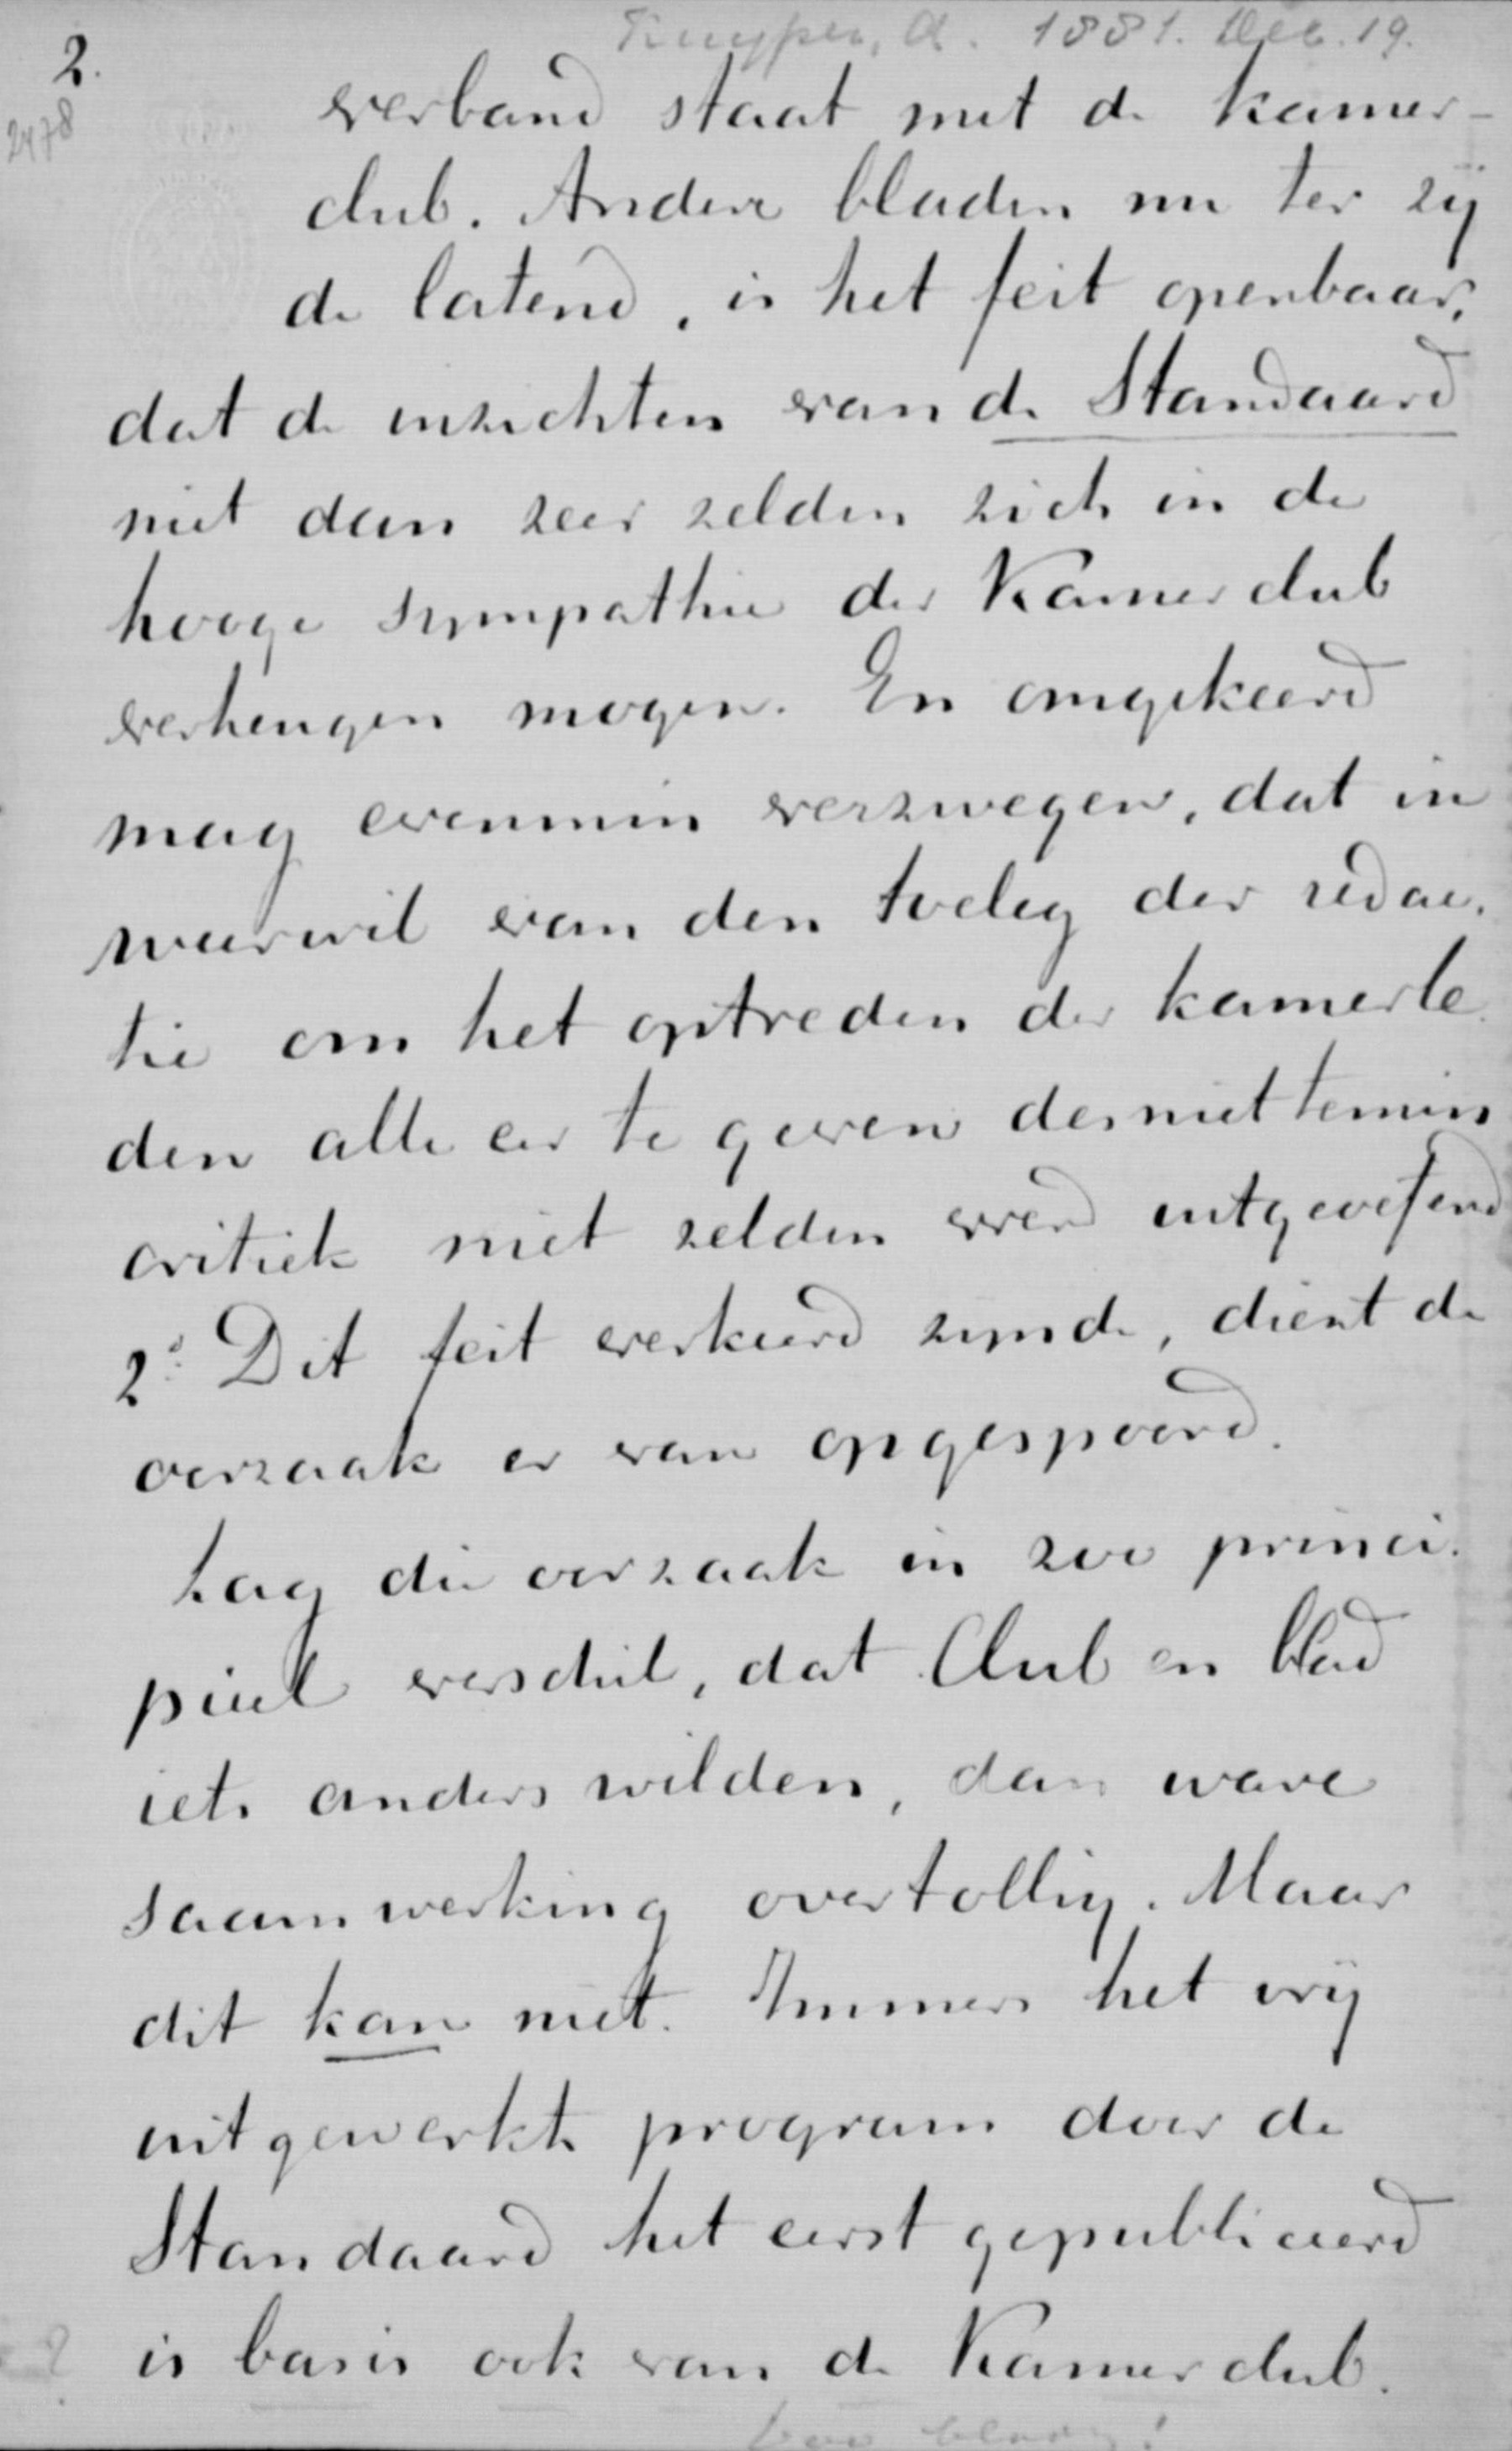 Kuyper, A. 1881. Dec. 19.
2.
2478
verband staat met de kamer-
club. Andere bladen nu ter zij
de latend, is het feit openbaar,
dat de inzichten van de Standaard
niet dan zeer zelden zich in de
hooge sympathie der Kamerclub
verheugen mogen. En omgekeerd
mag evenmin verzwegen, dat in
weerwil van den toeleg der redac.
tie om het optreden der kamerle
den alle eer te geven desniettemin
critiek niet zelden werd uitgeoefend
2º. Dit feit verkeerd zijnde, dient de
oorzaak er van opgespoord.
Lag die oorzaak in zoo princi.
piëel verschil, dat Club en blad
iets anders wilden, dan ware
saamwerking overtollig. Maar
dit kan niet. Immers het vrij
uitgewerkte program door de
Standaard het eerst gepubliceerd
? is basis ook van de Kamerclub.